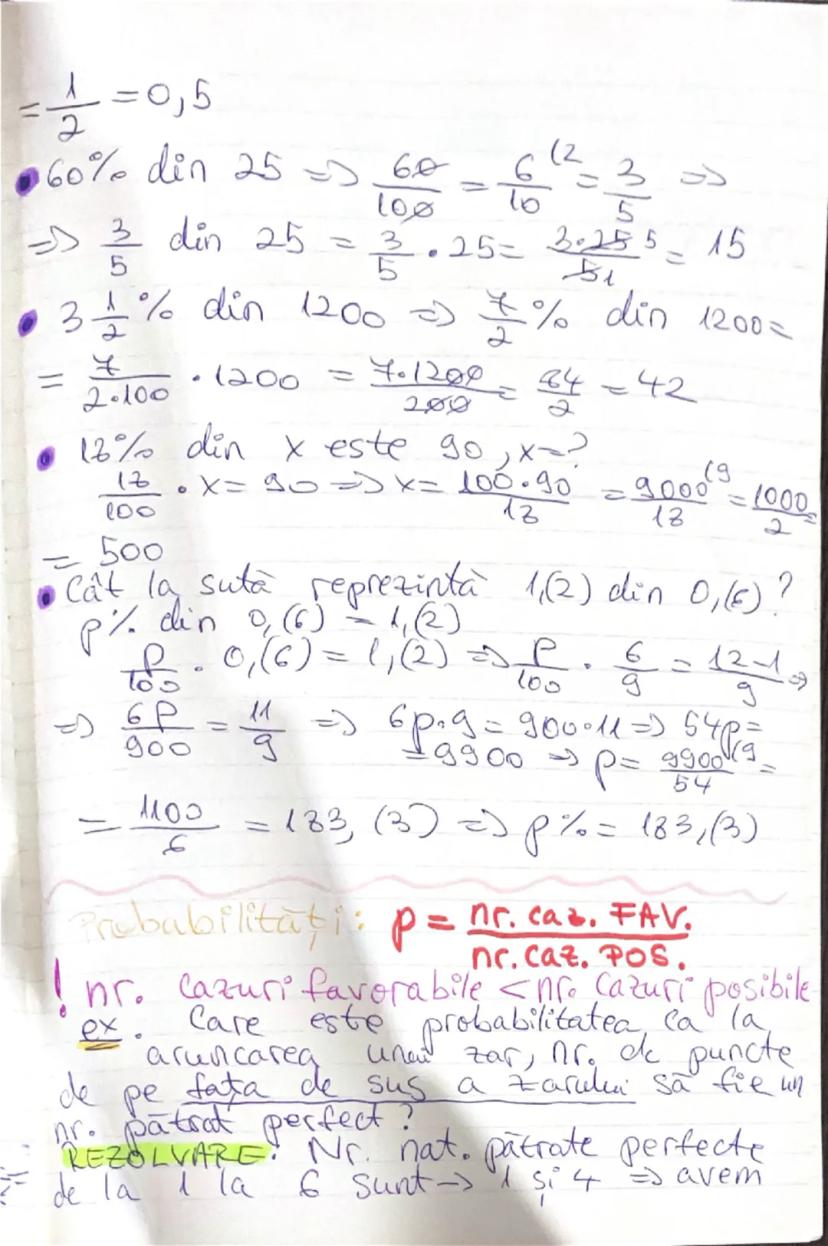 = 1/2 = 0,5
• 60% din 25 => 60/100 = 6/10 (2 = 3/5 =>
=> 3/5 din 25 = 3/5 · 25 = 3·25 5/5 1 = 15
• 3 1/2 % din 1200 => 7/2 % din 1200 =
= 7/2·100 · 1200 = 7·1200/200 = 84/2 = 42
• 18% din x este 90, x=?
18/100 · x = 90 => x = 100·90/18 = 9000/18 (9 = 1000/2 =
= 500
• Cât la sută reprezintă 1,(2) din 0,(6)?
p% din 0,(6) = 1,(2)
p/100 · 0,(6) = 1,(2) => p/100 · 6/9 = 12-1/9 =>
=> 6p/900 = 11/9 => 6p·9 = 900·11 => 54p =
= 9900 => p = 9900/54 (9 =
= 1100/6 = 183,(3) => p% = 183,(3)
Probabilități: p = nr. caz. FAV./nr. caz. POS.
! nr. cazuri favorabile < nr. cazuri posibile
ex. Care este probabilitatea ca la
aruncarea unui zar, nr. de puncte
de pe fața de sus a zarului să fie un
nr. pătrat perfect?
REZOLVARE: Nr. nat. pătrate perfecte
de la 1 la 6 sunt -> 1 și 4 => avem